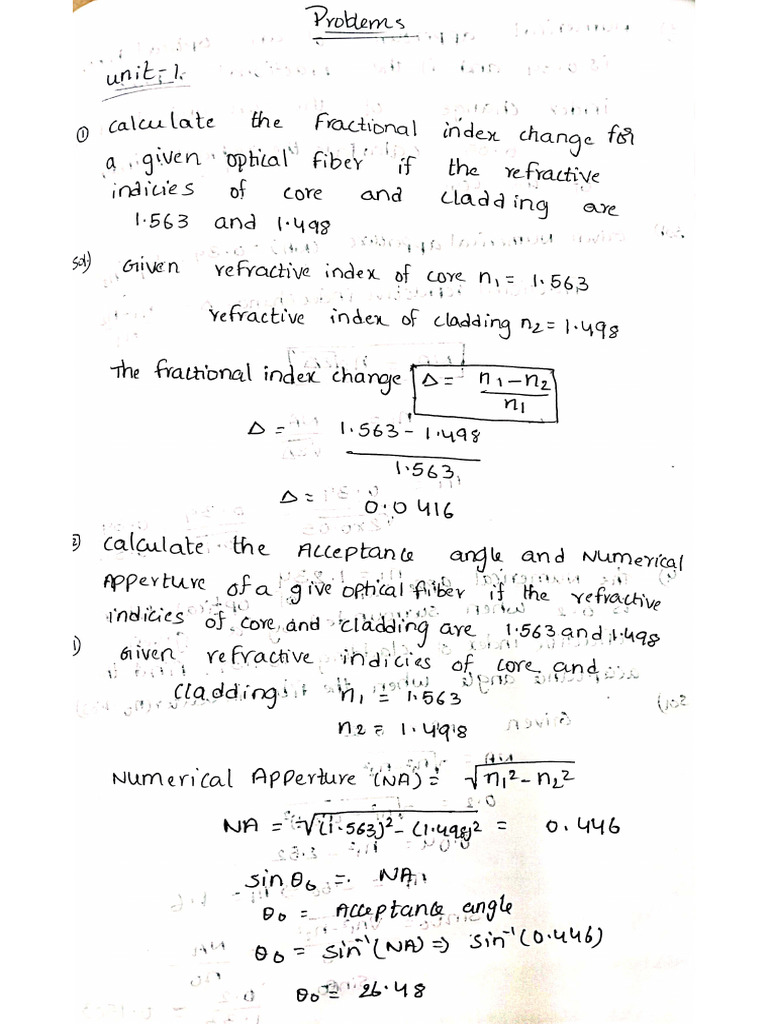 Problems
unit-1.
① calculate the fractional index change for
a given optical fiber if the refractive
indicies of core and cladding are
1.563 and 1.498
sol) Given refractive index of core n₁ = 1.563
refractive index of cladding n₂ = 1.498
The fractional index change Δ = n₁-n₂ / n₁
Δ = 1.563 - 1.498 / 1.563
Δ = 0.0416
② calculate the Acceptance angle and Numerical
Apperture of a give optical fiber if the refractive
indicies of core and cladding are 1.563 and 1.498
) Given refractive indicies of core and
cladding n₁ = 1.563
n₂ = 1.498
Numerical Apperture (NA) = √n₁² - n₂²
NA = √(1.563)² - (1.498)² = 0.446
sin θ₀ = NA
θ₀ = Acceptance angle
θ₀ = sin⁻¹(NA) ⇒ sin⁻¹(0.446)
θ₀ = 26.48